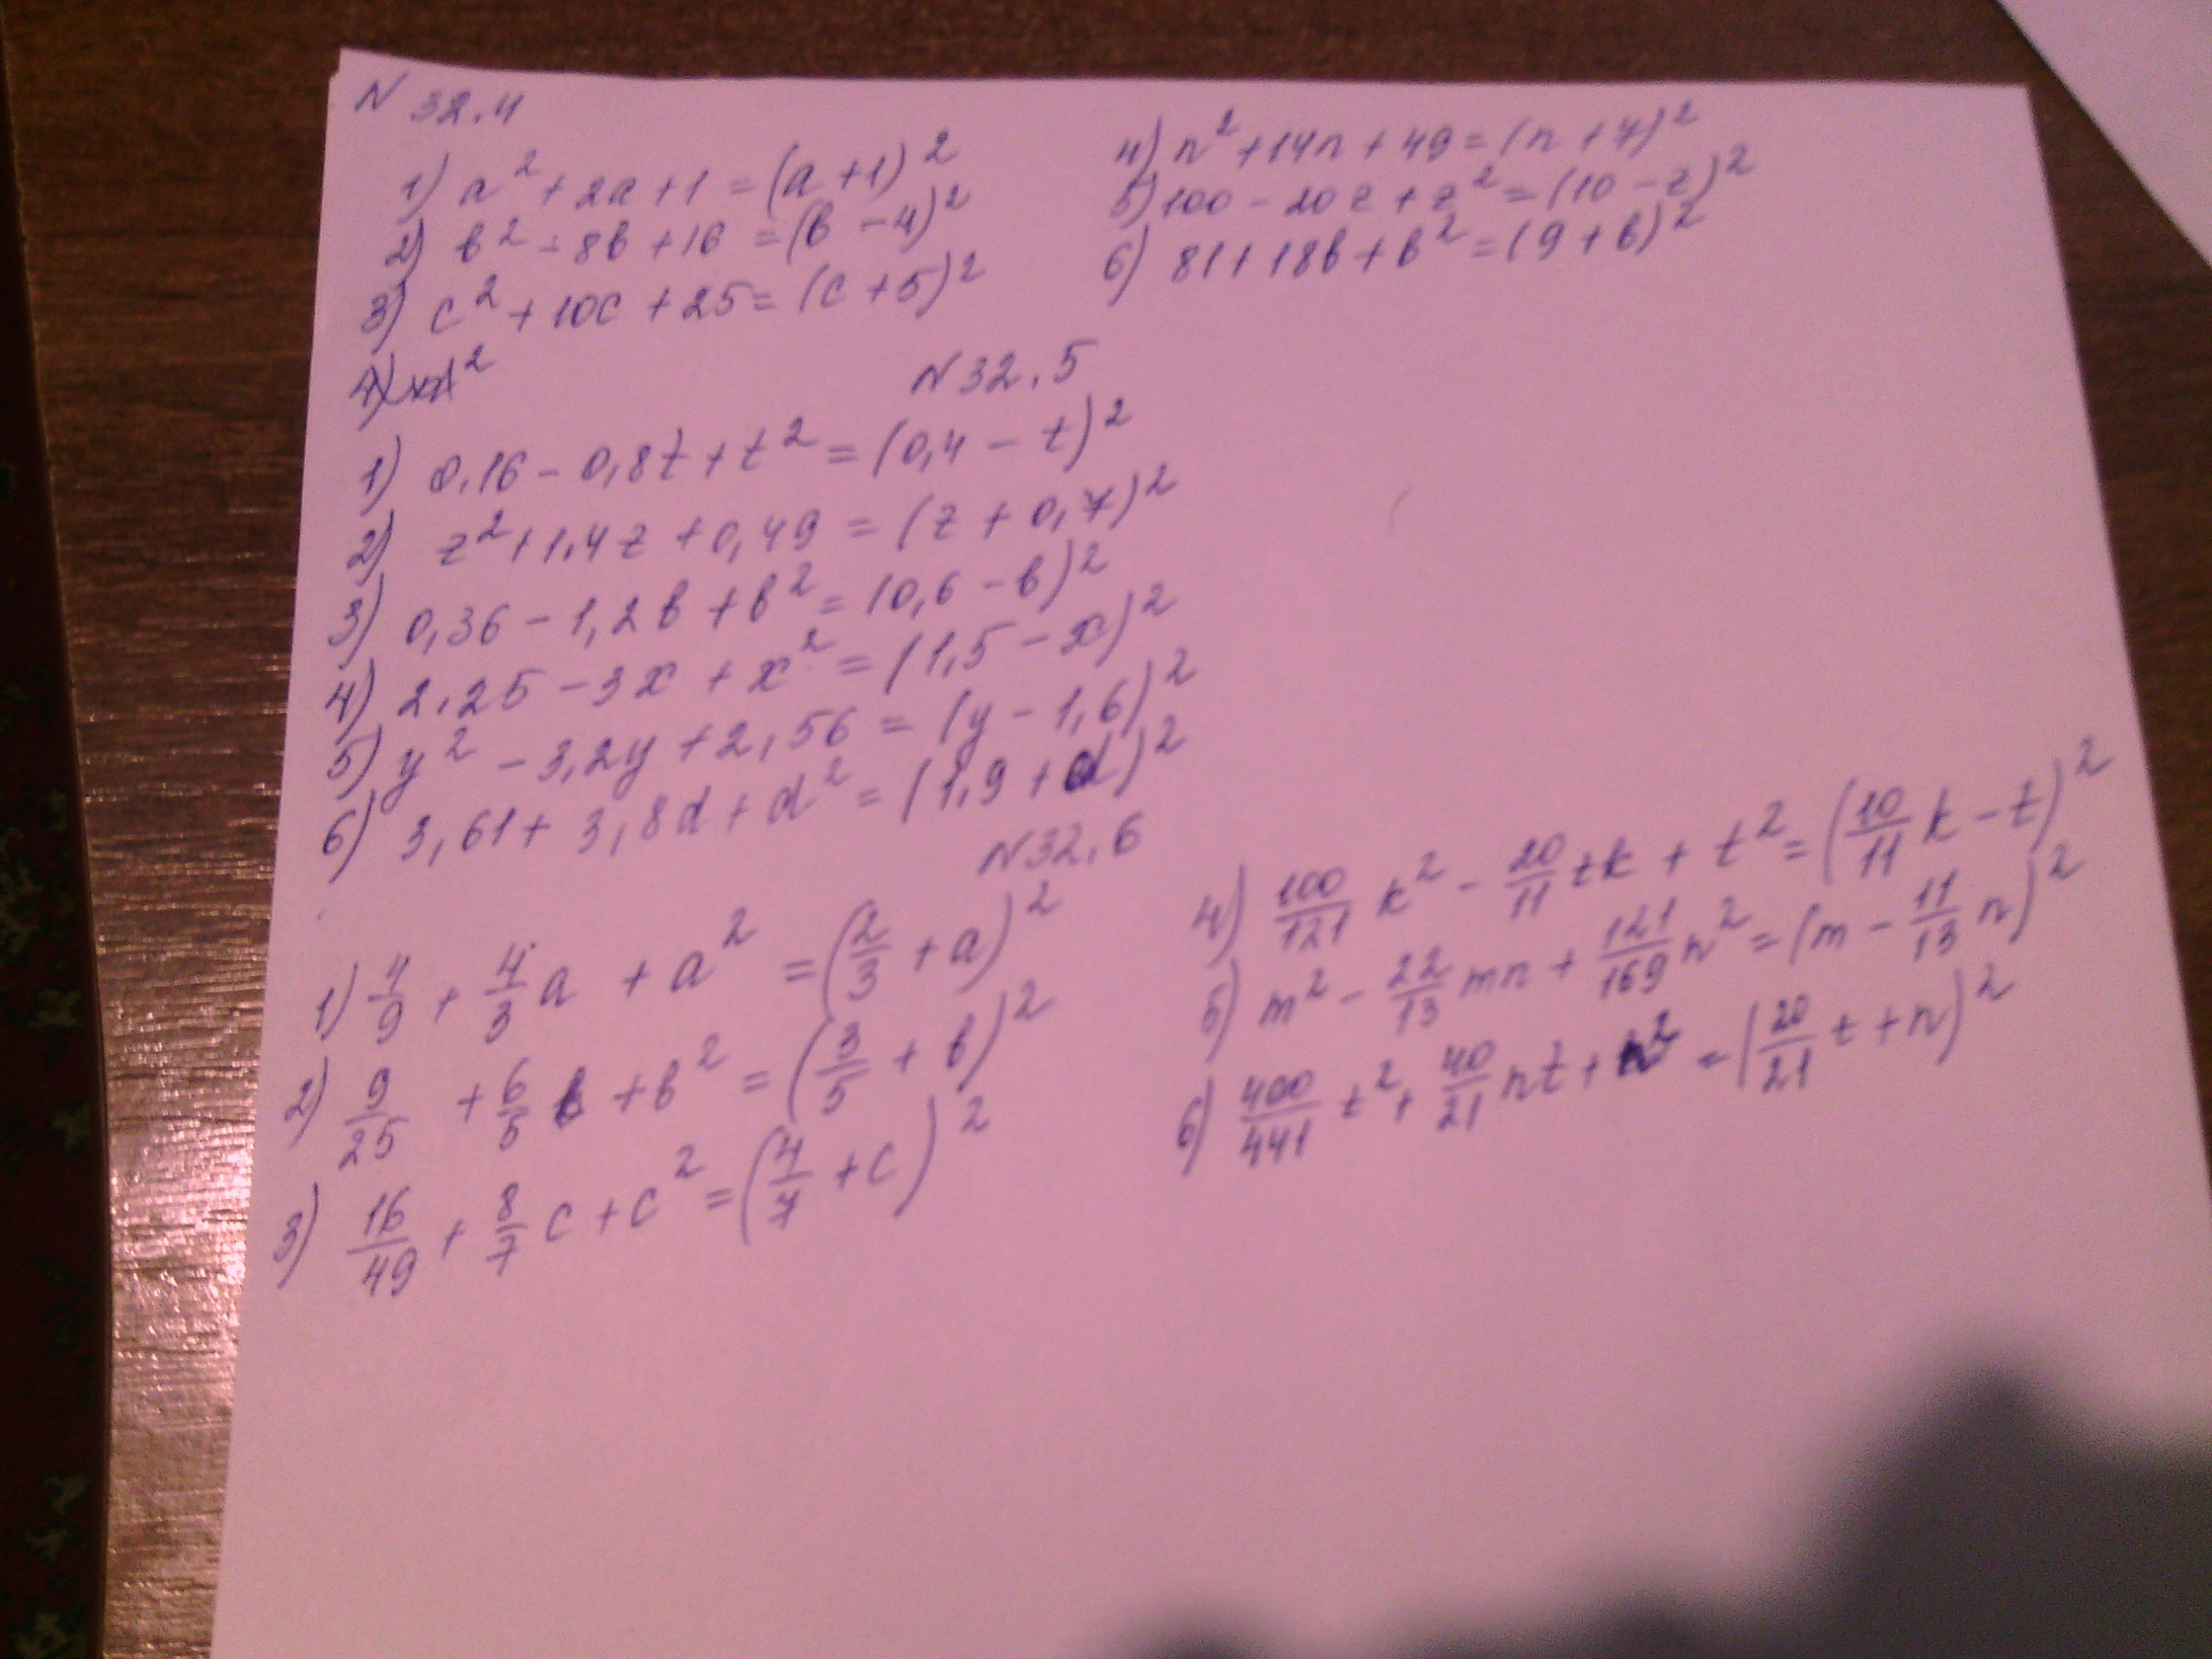 N 32.4
1) a² + 2a + 1 = (a + 1)²
2) b² - 8b + 16 = (b - 4)²
3) c² + 10c + 25 = (c + 5)²
4) n² + 14n + 49 = (n + 7)²
5) 100 - 20z + z² = (10 - z)²
6) 81 + 18b + b² = (9 + b)²
N 32.5
1) 0,16 - 0,8t + t² = (0,4 - t)²
2) z² + 1,4z + 0,49 = (z + 0,7)²
3) 0,36 - 1,2b + b² = (0,6 - b)²
4) 2,25 - 3x + x² = (1,5 - x)²
5) y² - 3,2y + 2,56 = (y - 1,6)²
6) 3,61 + 3,8d + d² = (1,9 + d)²
N 32.6
1) 4/9 + 4/3 a + a² = (2/3 + a)²
2) 9/25 + 6/5 b + b² = (3/5 + b)²
3) 16/49 + 8/7 c + c² = (4/7 + c)²
4) 100/121 k² - 20/11 tk + t² = (10/11 k - t)²
5) m² - 22/13 mn + 121/169 n² = (m - 11/13 n)²
6) 400/441 t² + 40/21 nt + n² = (20/21 t + n)²